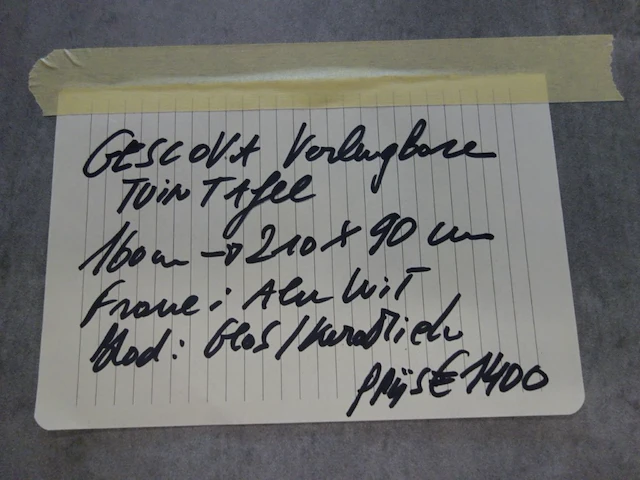 GESCOVA Verlengbare
TUIN TAfel
160cm → 210 X 90 cm
Frame: Alu WiT
Blad: Glas/Keramiek
PRijs € 1400